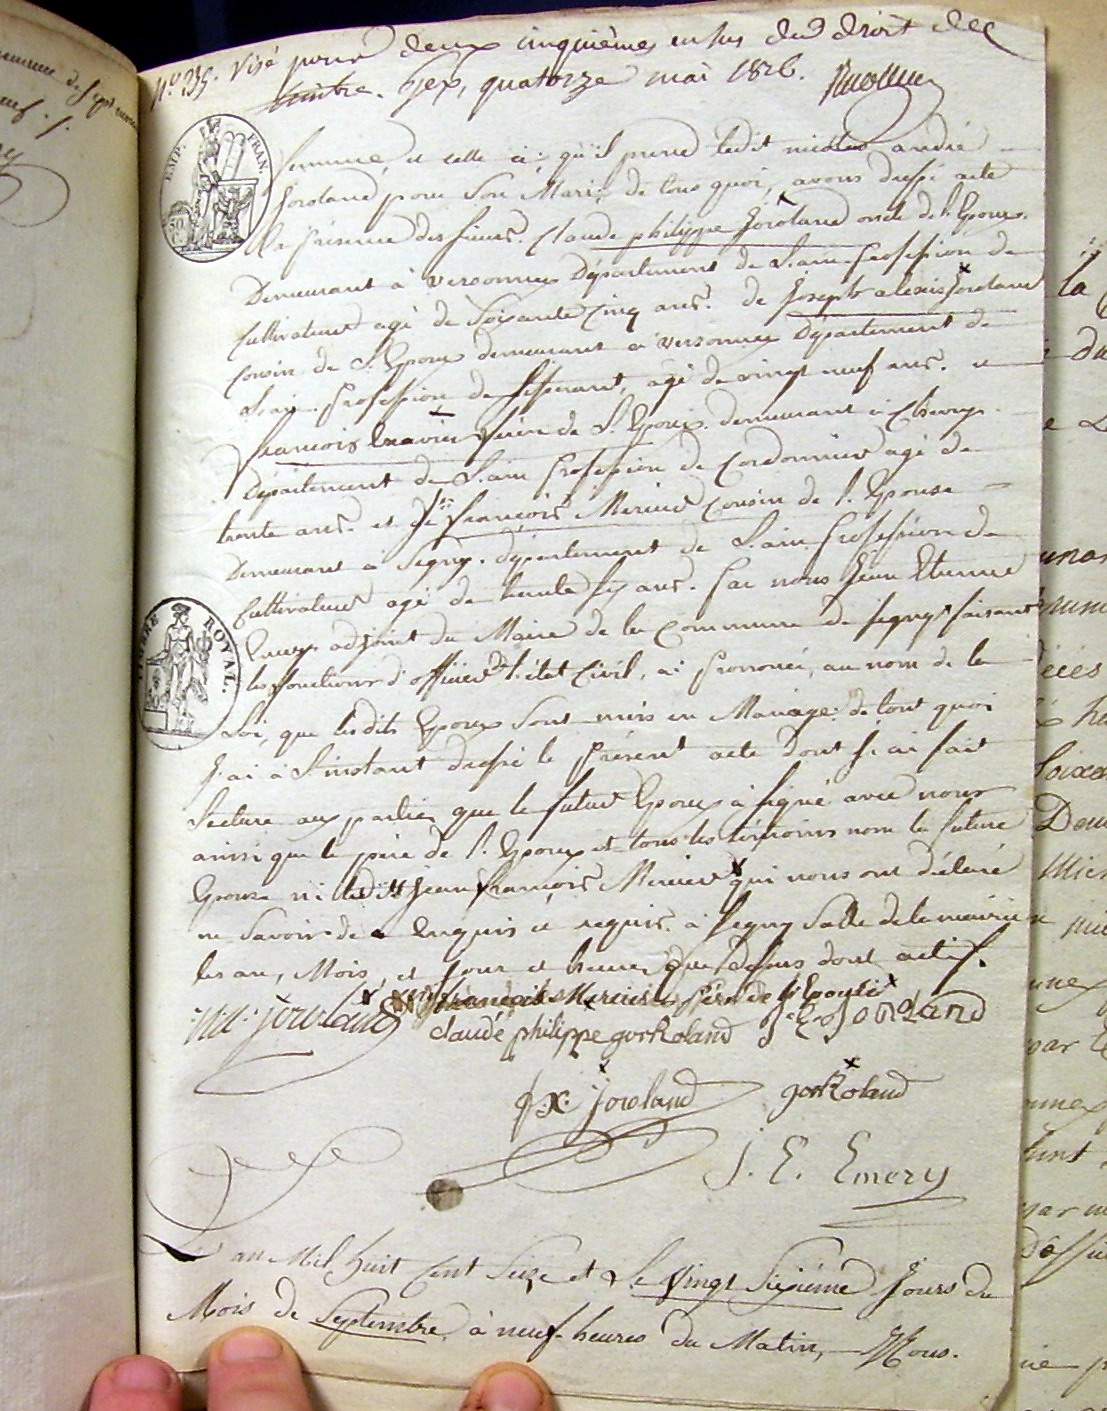 N.° 235. Visé pour deux cinquièmes en sus du droit de
timbre. Gex, quatorze mai 1826.
EMP. FRAN.
femme, et celle ci qu'il prend ledit andré
Joroland pour Son Mari; de tous quoi, avons dressé acte
En présence des sieurs. Claude philippe Joroland oncle de l'Epoux.
Demeurant à versonnex Département de L'ain. profession de
Cultivateur agé de Soixante Cinq ans. de Joseph alexis Joroland
Cousin de L'Epoux demeurant à versonnex Département de
L'ain. profession de agé de vingt neuf ans. et
francois Exavier frère de L'Epoux. demeurant à Chevry.
Département de L'ain Profession de Cordonnier agé de
trente ans. et de Jn françois Mercier Cousin de l'Epouse
Demeurant à Segny. département de L'ain Profession de
Cultivateur agé de trente six ans. Par nous Jean Etienne
Emery adjoint du Maire de la Commune de Segny faisant
les fonctions d'officier de l'état Civil, ai Prononcé, au nom de la
TIMBRE ROYAL.
Loi, que lesdits Epoux Sont unis en Mariage. de tout quoi
J'ai à L'instant dressé le Présent acte dont J'ai fait
Lecture aux parties que le futur Epoux à signé avec nous
ainsi que le père de l'Epoux et tous les témoins non la future
Epouse ni ledit Jean françois Mercier qui nous ont déclaré
ne Savoir de Enquis et requis. à Segny Salle de la mairie
les an, Mois, et Jour et heures que dessus dont acte.
françois Mercier père de l'Epouse
claude philippe gorRoland J. A. JoroLand
f. x. joroland gorRoland
J. E. Emery
L'an Mil huit Cent Seize et Le Vingt Sixième Jours du
Mois de Septembre, à neuf heures du Matin, Nous.